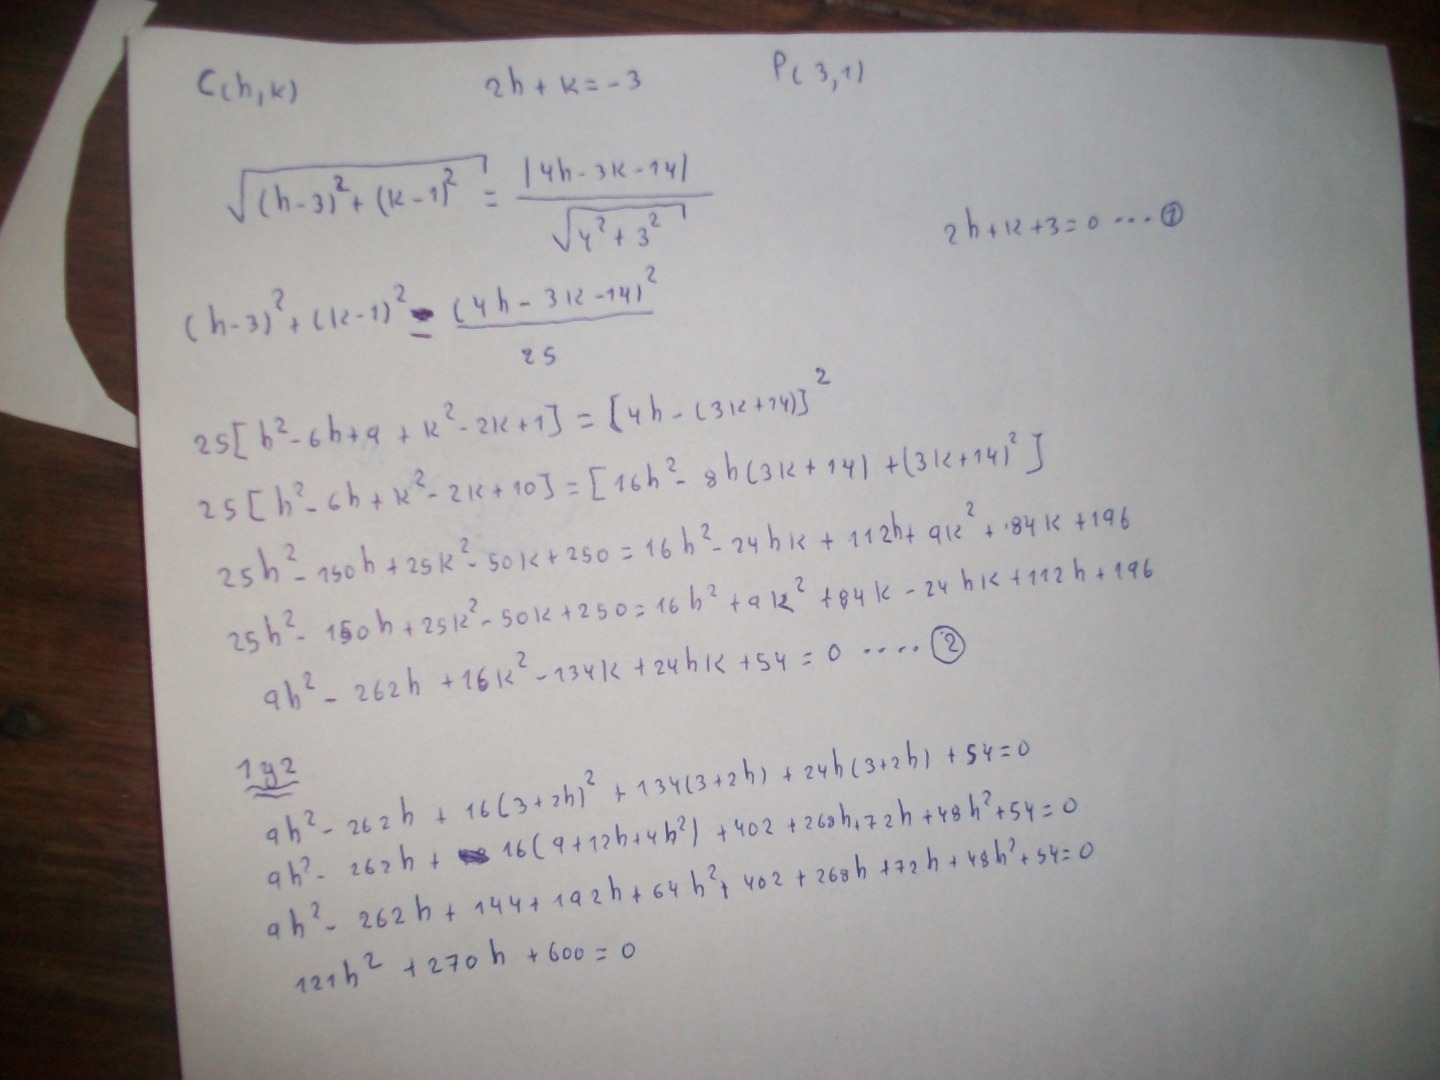 C(h,k) 2h + k = -3 P(3,1)
√((h-3)² + (k-1)²) = |4h - 3k - 14| / √(4² + 3²)
2h + k + 3 = 0 ... ①
(h-3)² + (k-1)² = (4h - 3k - 14)² / 25
25[h² - 6h + 9 + k² - 2k + 1] = [4h - (3k + 14)]²
25[h² - 6h + k² - 2k + 10] = [16h² - 8h(3k + 14) + (3k + 14)²]
25h² - 150h + 25k² - 50k + 250 = 16h² - 24hk + 112h + 9k² + 84k + 196
25h² - 150h + 25k² - 50k + 250 = 16h² + 9k² + 84k - 24hk + 112h + 196
9h² - 262h + 16k² - 134k + 24hk + 54 = 0 .... ②
1 y 2
9h² - 262h + 16(3 + 2h)² + 134(3 + 2h) + 24h(3 + 2h) + 54 = 0
9h² - 262h + 16(9 + 12h + 4h²) + 402 + 268h + 72h + 48h² + 54 = 0
9h² - 262h + 144 + 192h + 64h² + 402 + 268h + 72h + 48h² + 54 = 0
121h² + 270h + 600 = 0